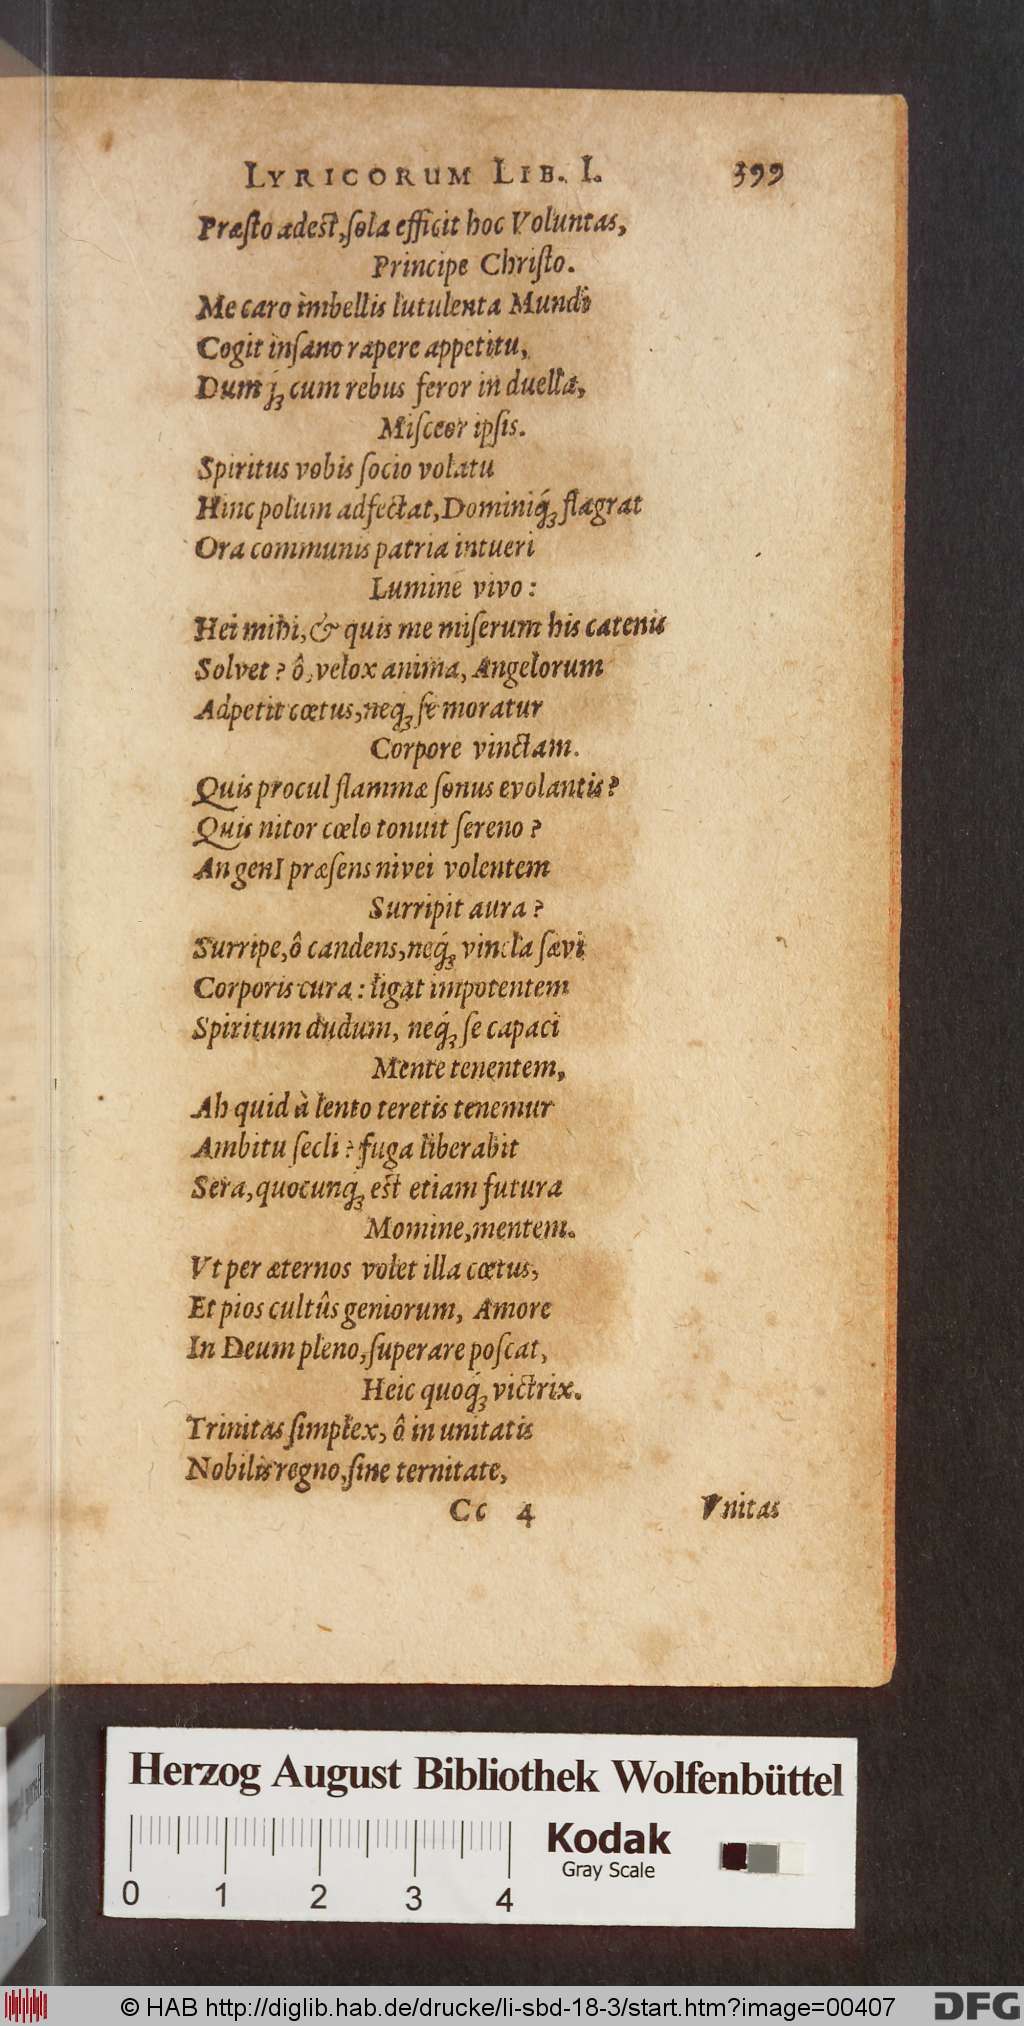 LYRICORUM LIB. I. 399
Præſto adest, ſola efficit hoc Voluntas,
Principe Chriſto.
Me caro imbellis lutulenta Mundi
Cogit inſano rapere appetitu,
Dum q́ꝫ cum rebus feror in duella,
Miſceor ipſis.
Spiritus vobis ſocio volatu
Hinc polum adfectat, Dominiq́ꝫ flagrat
Ora communis patria intueri
Lumine vivo:
Hei mihi, & quis me miſerum his catenis
Solvet? ô, velox anima, Angelorum
Adpetit cœtus, neqꝫ ſe moratur
Corpore vinctam.
Quis procul flammæ ſonus evolantis?
Quis nitor cœlo tonuit ſereno?
An genI præſens nivei volentem
Surripit aura?
Surripe, ô candens, neq́ꝫ vincla ſævi
Corporis cura: ligat impotentem
Spiritum dudum, neq́ꝫ ſe capaci
Mente tenentem,
Ah quid à lento teretis tenemur
Ambitu ſecli? fuga liberabit
Sera, quocunq́ꝫ est etiam futura
Momine, mentem.
Vt per æternos volet illa cœtus,
Et pios cultûs geniorum, Amore
In Deum pleno, ſuperare poſcat,
Heic quoq́ꝫ victrix.
Trinitas ſimplex, ô in unitatis
Nobilis regno, ſine ternitate,
Cc 4 Vnitas
Herzog August Bibliothek Wolfenbüttel
Kodak
Gray Scale
0 1 2 3 4
© HAB http://diglib.hab.de/drucke/li-sbd-18-3/start.htm?image=00407 DFG